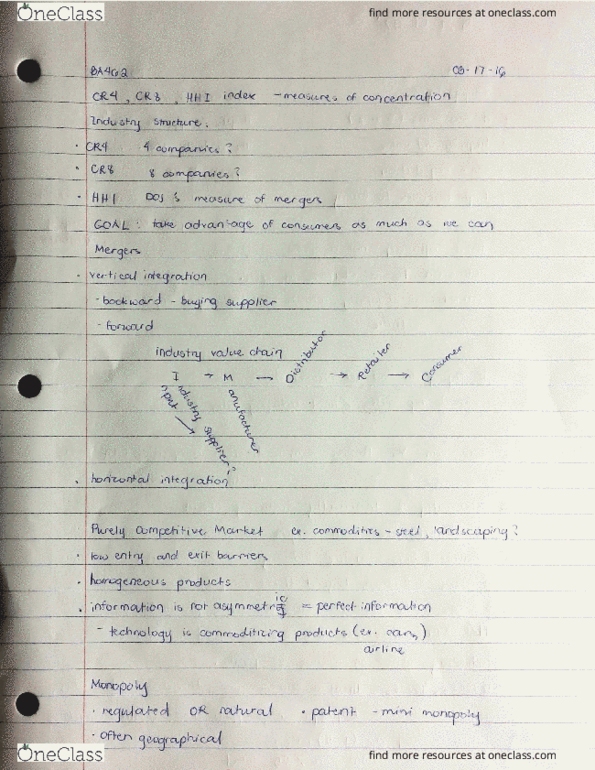 OneClass find more resources at oneclass.com
BA462 03-17-16
CR4, CR8, HHI index - measures of concentration
Industry structure.
· CR4 4 companies?
· CR8 8 companies?
· HHI DOJ's measure of mergers
GOAL: take advantage of consumers as much as we can
Mergers
· vertical integration
- backward - buying supplier
- forward
industry value chain
I → M → Distributor → Retailer → Consumer
input → industry supplier? manufacturer
· horizontal integration
Purely Competitive Market ex. commodities - steel, landscaping?
· low entry and exit barriers
· homogeneous products
· information is not asymmetric = perfect information
- technology is commoditizing products (ex. cars,)
airline
Monopoly
· regulated OR natural · patent - mini monopoly
· often geographical
OneClass find more resources at oneclass.com